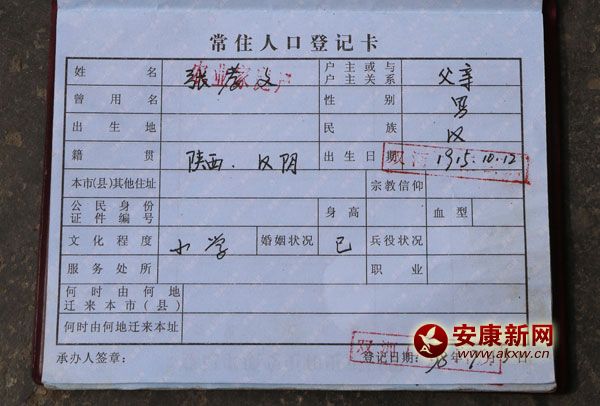 常住人口登记卡
姓名 张 户主或与户主关系 父亲
曾用名 性别 男
出生地 民族 汉
籍贯 陕西.汉阴 出生日期 1915.10.12
本市(县)其他住址 宗教信仰
公民身份证件编号 身高 血型
文化程度 小学 婚姻状况 已 兵役状况
服务处所 职业
何时由何地迁来本市(县)
何时由何地迁来本址
承办人签章： 双河 登记日期： 年 月 日
安康新网
www.akxw.cn